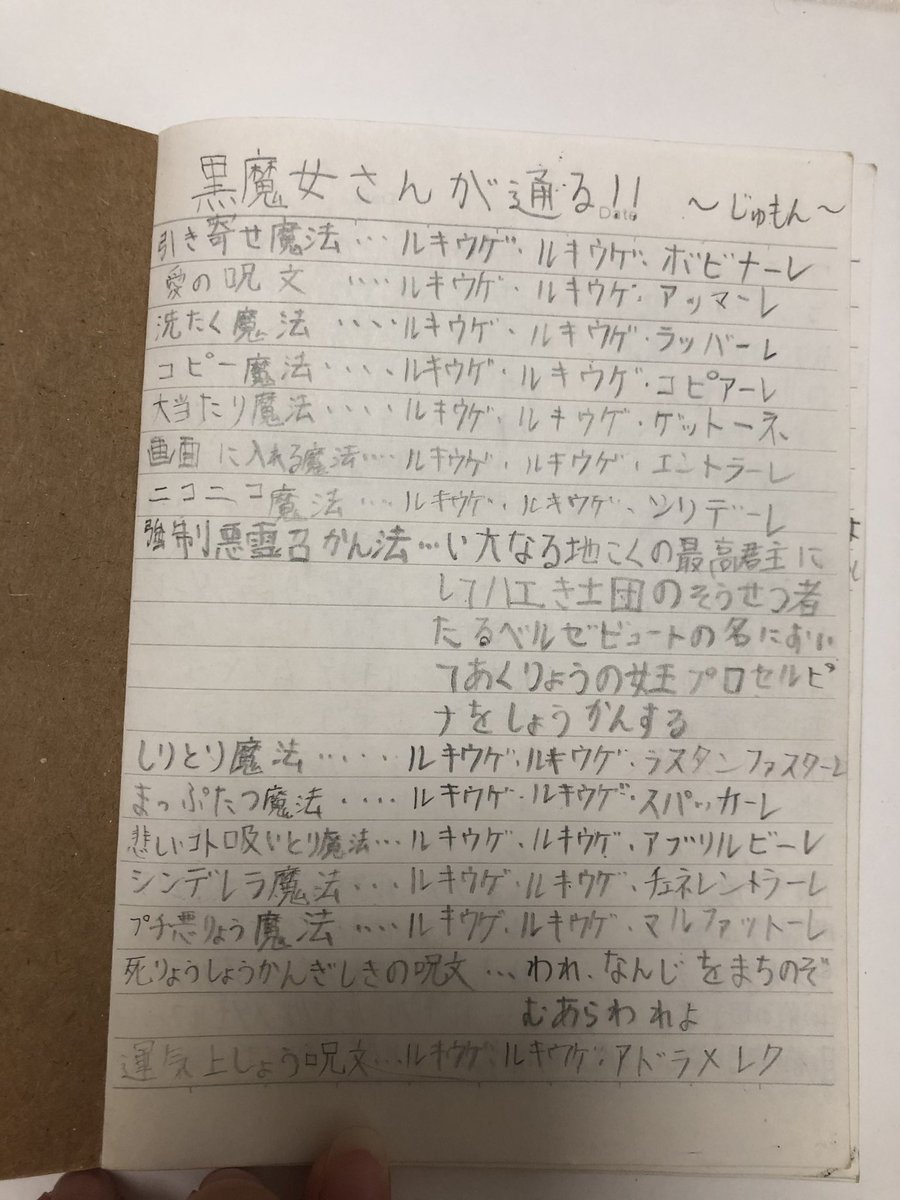 黒魔女さんが通る!! ～じゅもん～
Date
引き寄せ魔法…ルキウゲ・ルキウゲ・ボビナーレ
愛の呪文 ‥‥ルキウゲ・ルキウゲ・アッマーレ
洗たく魔法 ‥‥ルキウゲ・ルキウゲ・ラッバーレ
コピー魔法‥‥ルキウゲ・ルキウゲ・コピアーレ
大当たり魔法‥‥ルキウゲ・ルキウゲ・ゲットーネ
画面に入れる魔法‥‥ルキウゲ・ルキウゲ・エントラーレ
ニコニコ魔法…ルキウゲ・ルキウゲ・ソリデーレ
強制悪霊召かん法…い大なる地ごくの最高君主に
してハエき士団のそうせつ者
たるベルゼビュートの名におい
てあくりょうの女王プロセルピ
ナをしょうかんする
しりとり魔法‥‥‥ルキウゲ・ルキウゲ・ラスタンファスターレ
まっぷたつ魔法‥‥ルキウゲ・ルキウゲ・スパッカーレ
悲しいコト吸いとり魔法…ルキウゲ・ルキウゲ・アブリルビーレ
シンデレラ魔法…ルキウゲ・ルキウゲ・チェネレントラーレ
プチ悪りょう魔法‥‥ルキウゲ・ルキウゲ・マルファットーレ
死りょうしょうかんぎしきの呪文…われ、なんじをまちのぞ
むあらわれよ
運気上しょう呪文…ルキウゲ・ルキウゲ・アドラメレク